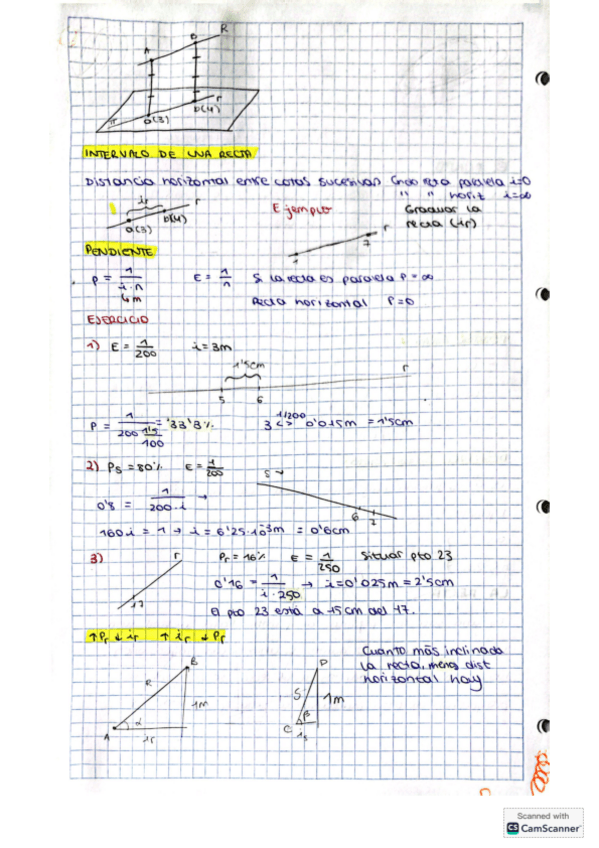 R
B
A
r
b(4)
π
a(3)
INTERVALO DE UNA RECTA
Distancia horizontal entre cotas sucesivas Cndo recta paralela i=0
" " horiz i=∞
ir
r
b(4)
a(3)
Ejemplo
Graduar la
recta (ir)
r
7
1
PENDIENTE
P = 1/(i·n)
↳ m
E = 1/n
Si la recta es paralela P = ∞
Recta horizontal P=0
EJERCICIO
1) E = 1/200 i = 3m
1'5cm
r
5 6
P = 1/(200 1'5/100) = '33'3%
3 <1/200> 0'015m = 1'5cm
2) Ps = 80% E = 1/200
s
0'8 = 1/(200·i) →
6 7
160i = 1 → i = 6'25·10⁻³m = 0'6cm
3)
r
17
Pr = 16% E = 1/250 Situar pto 23
0'16 = 1/(i·250) → i=0'025m = 2'5cm
El pto 23 está a 15cm del 17.
↑Pr ↓ir ↑ir ↓Pr
Cuanto más inclinada
la recta, menos dist
horizontal hay
B
R
1m
A
α
ir
D
S
1m
C
β
is
Scanned with
CS CamScanner